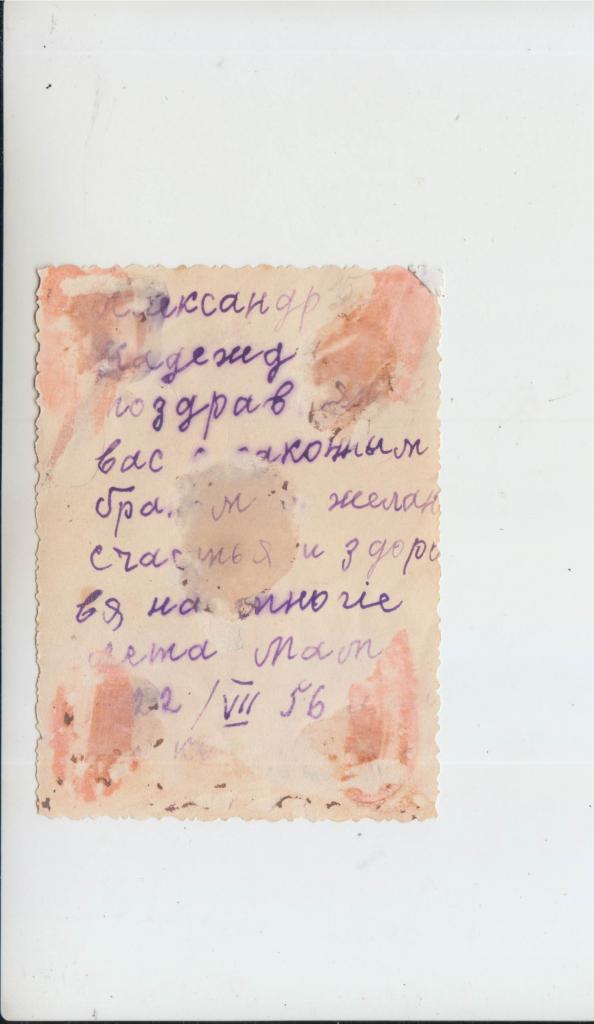 Александр
Надежд
поздрав
вас с законным
браком желаю
счастья и здоро
вя на многие
лета Мам
22/VII 56